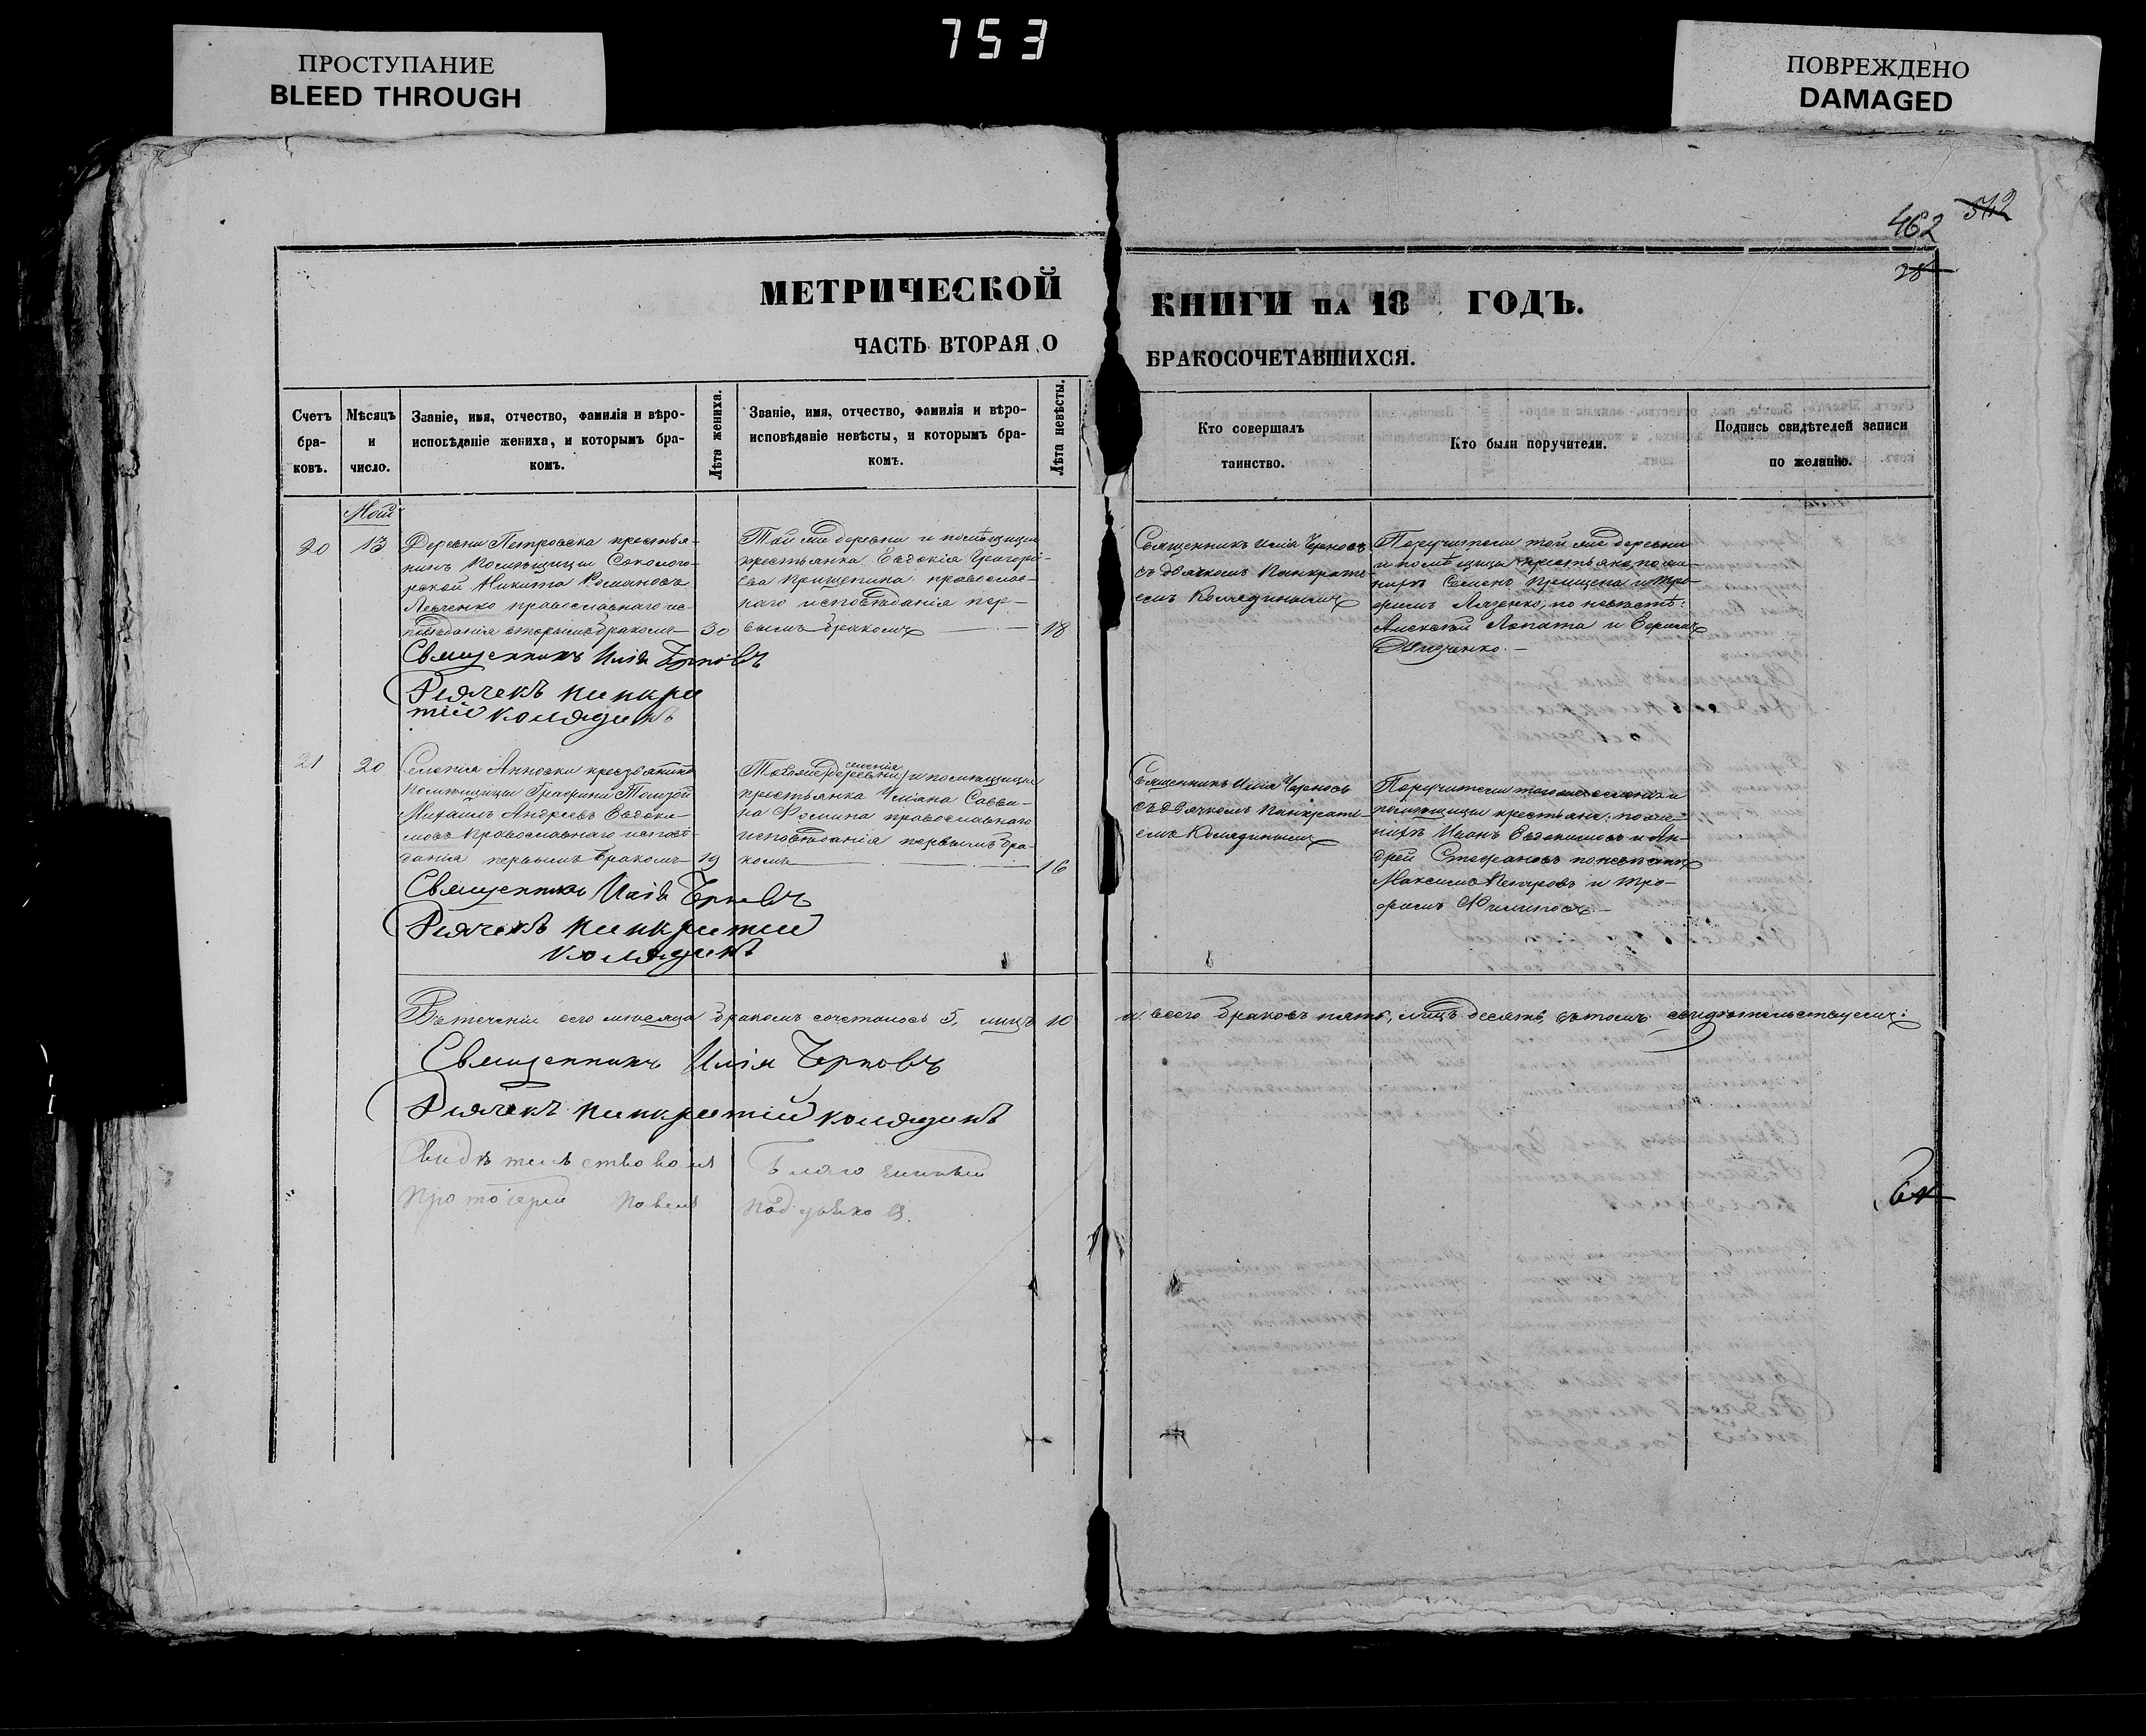 753
ПРОСТУПАНИЕ
BLEED THROUGH
ПОВРЕЖДЕНО
DAMAGED
462 542
28
МЕТРИЧЕСКОЙ КНИГИ на 18 ГОДЪ.
ЧАСТЬ ВТОРАЯ О БРАКОСОЧЕТАВШИХСЯ.
Счетъ
бра-
ковъ.
Мѣсяцъ
и
число.
Званіе, имя, отчество, фамилія и вѣро-
исповѣданіе жениха, и которымъ бра-
комъ.
Лѣта жениха.
Званіе, имя, отчество, фамилія и вѣро-
исповѣданіе невѣсты, и которымъ бра-
комъ.
Лѣта невѣсты.
Кто совершалъ
таинство.
Кто были поручители.
Подпись свидѣтелей записи
по желанію.
Май
20
13
Деревни Петровска крестья-
нинъ помѣщицы Соколого-
рской Никита Романовъ
Левченко православнаго ис-
повѣданія вторымъ бракомъ
30
Той же деревни и помѣщицы
крестьянка Евдокія Григорі-
ева Прищепина православ-
наго исповѣданія пер-
вымъ бракомъ
18
Священникъ Илія Черновъ
съ дьячкомъ Панкрати-
емъ Колядинымъ
Поручители той же деревни
и помѣщицы крестьяне по же-
нихѣ Семенъ Прищепа и Тро-
фимъ Лязенко, по невѣстѣ:
Алексѣй Лопата и
Священникъ Илія Черновъ
Дьячекъ Панкра
тій Колядинъ
21
20
Селенія Анновки крестьянинъ
помѣщицы Графини Толстой
Михаилъ Андреевъ Евдоки-
мовъ православнаго исповѣ-
данія первымъ бракомъ
19
селенія
Той же (деревни) и помѣщицы
крестьянка Уліана Савви-
на Фомина православнаго
исповѣданія первымъ бра-
комъ
16
Священникъ Илія Черновъ
съ дьячкомъ Панкрати-
емъ Колядинымъ
Поручители того же селенія и
помѣщицы крестьяне: по же-
нихѣ Иванъ Евдокимовъ и Ан-
дрей Стефановъ по невѣстѣ
Максимъ Петровъ и Тро-
фимъ Филиповъ
Священникъ Илія Черновъ
Дьячекъ Панкратій
Колядинъ
Въ теченіи сего мѣсяца бракомъ сочеталось 5, лицъ 10
а всего браковъ пять, лицъ десять, въ томъ свидѣтельствуемъ:
Священникъ Илія Черновъ
Дьячекъ Панкратій Колядинъ
Свидѣтельствовалъ Благочинный
Протоіерей Павелъ